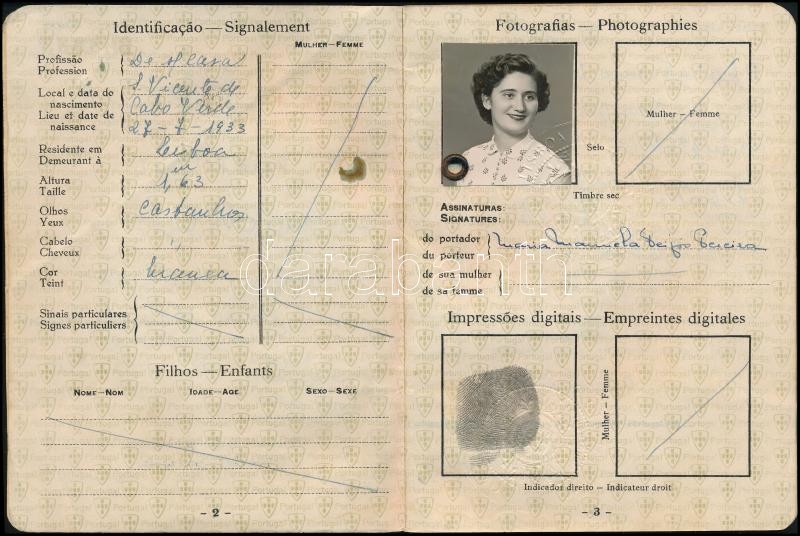 Identificação — Signalement
MULHER – FEMME
Profissão
Profession
De s/ casa
Local e data do
nascimento
Lieu et date de
naissance
S. Vicente de
Cabo Verde
27-7-1933
Residente em
Demeurant à
Lisboa
Altura
Taille
1,63
m
Olhos
Yeux
Castanhos
Cabelo
Cheveux
"
Cor
Teint
branca
Sinais particulares
Signes particuliers
Filhos — Enfants
NOME – NOM IDADE – AGE SEXO – SEXE
- 2 -
Fotografias — Photographies
Mulher – Femme
Selo
Timbre sec
ASSINATURAS:
SIGNATURES:
do portador
du porteur
Maria Manuela Pereira
de sua mulher
de sa femme
Impressões digitais — Empreintes digitales
Mulher – Femme
Indicador direito – Indicateur droit
- 3 -
darabanth